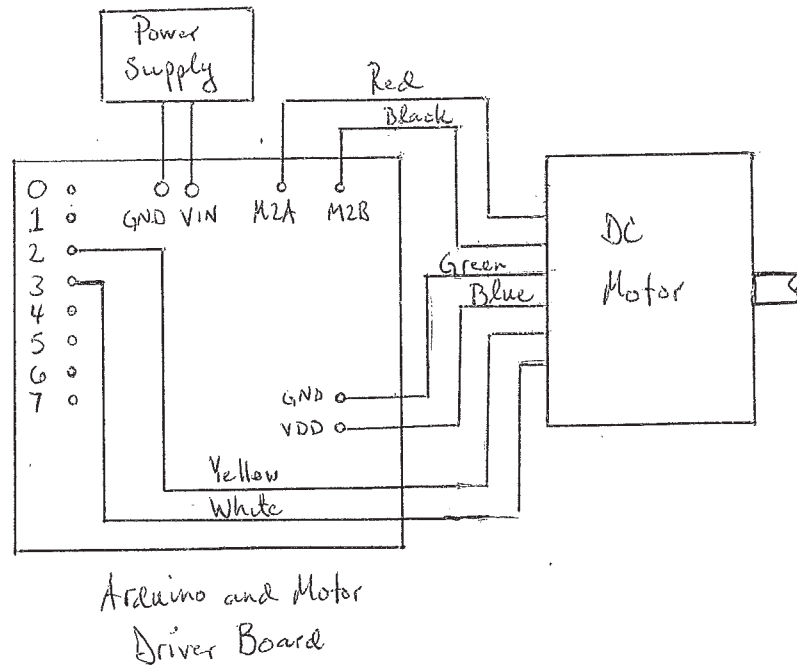 Power
Supply
Red
Black
0
1
2
3
4
5
6
7
GND VIN M2A M2B
DC
Motor
Green
Blue
GND
VDD
Yellow
White
Arduino and Motor
Driver Board